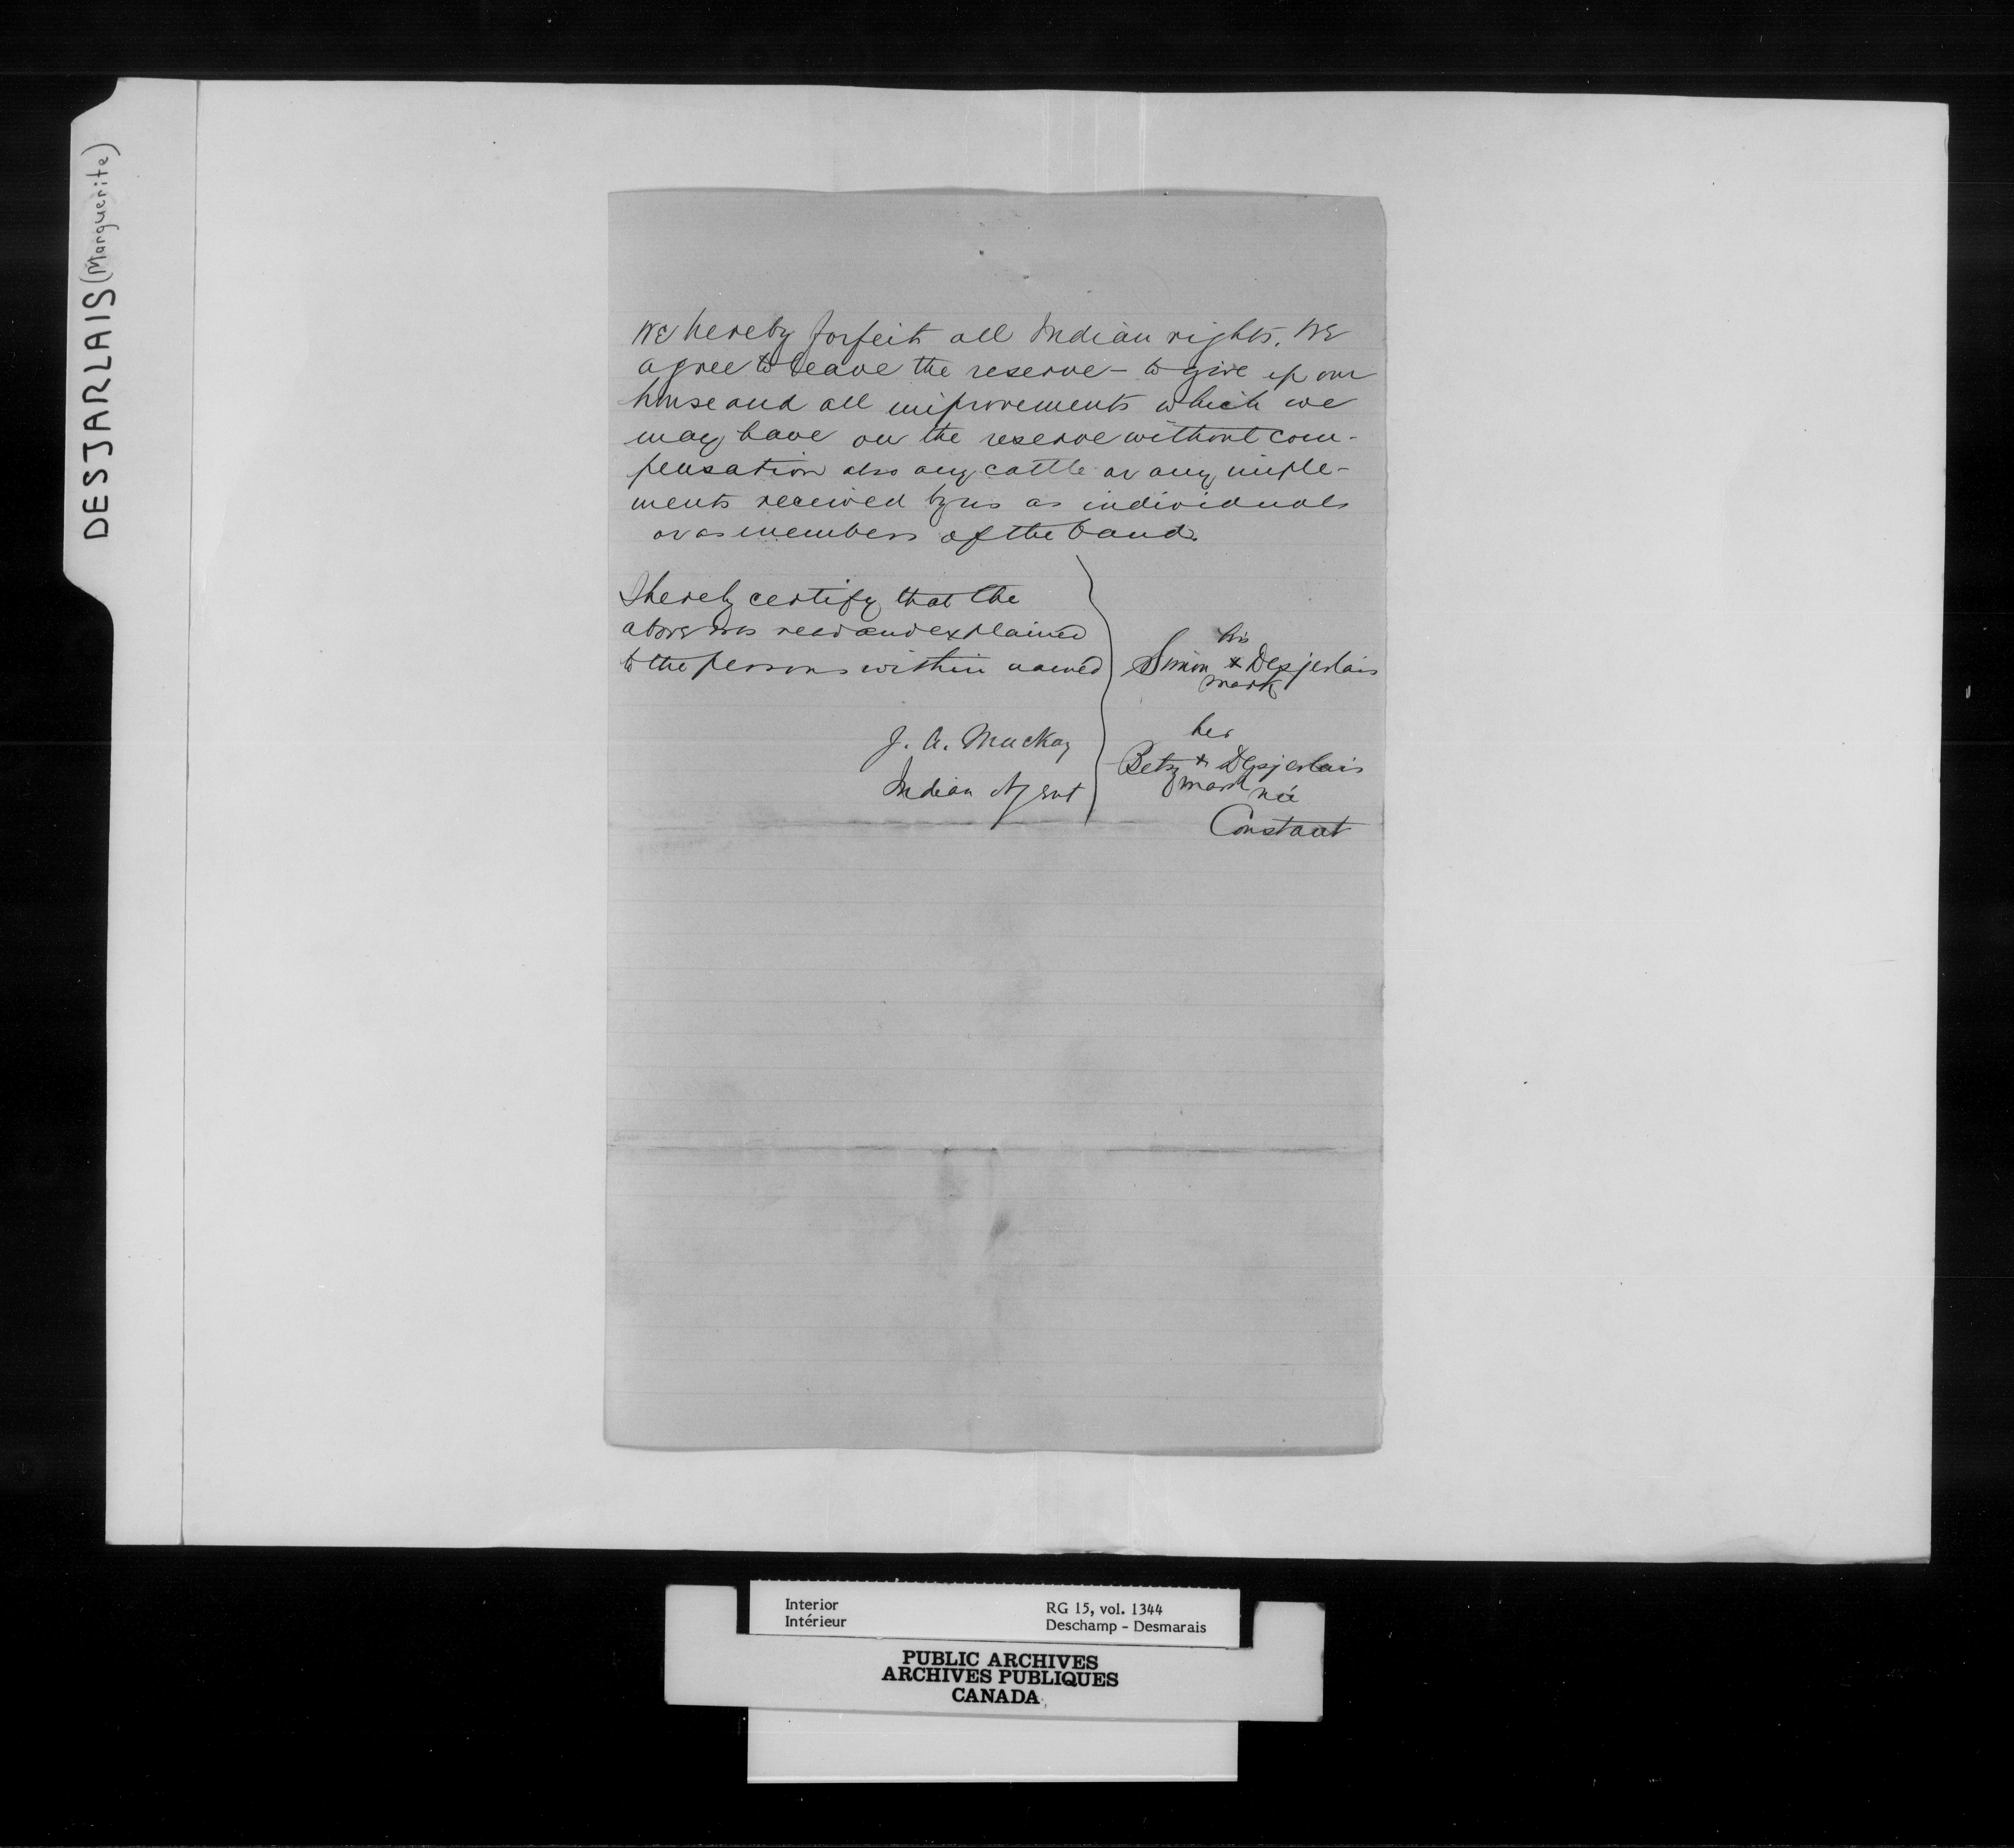 DESJARLAIS (Marguerite)
We hereby forfeit all Indian rights. We
agree to leave the reserve - to give up our
house and all improvements which we
may have on the reserve without com-
pensation also any cattle or any imple-
ments received by us as individuals
or as members of the band.
I hereby certify that the
above was read and explained
to the persons within named
J. A. Mackay
Indian Agent
his
Simon x Desjerlais
mark
her
Betsy x Desjerlais
mark née
Constant
Interior
Intérieur
RG 15, vol. 1344
Deschamp - Desmarais
PUBLIC ARCHIVES
ARCHIVES PUBLIQUES
CANADA